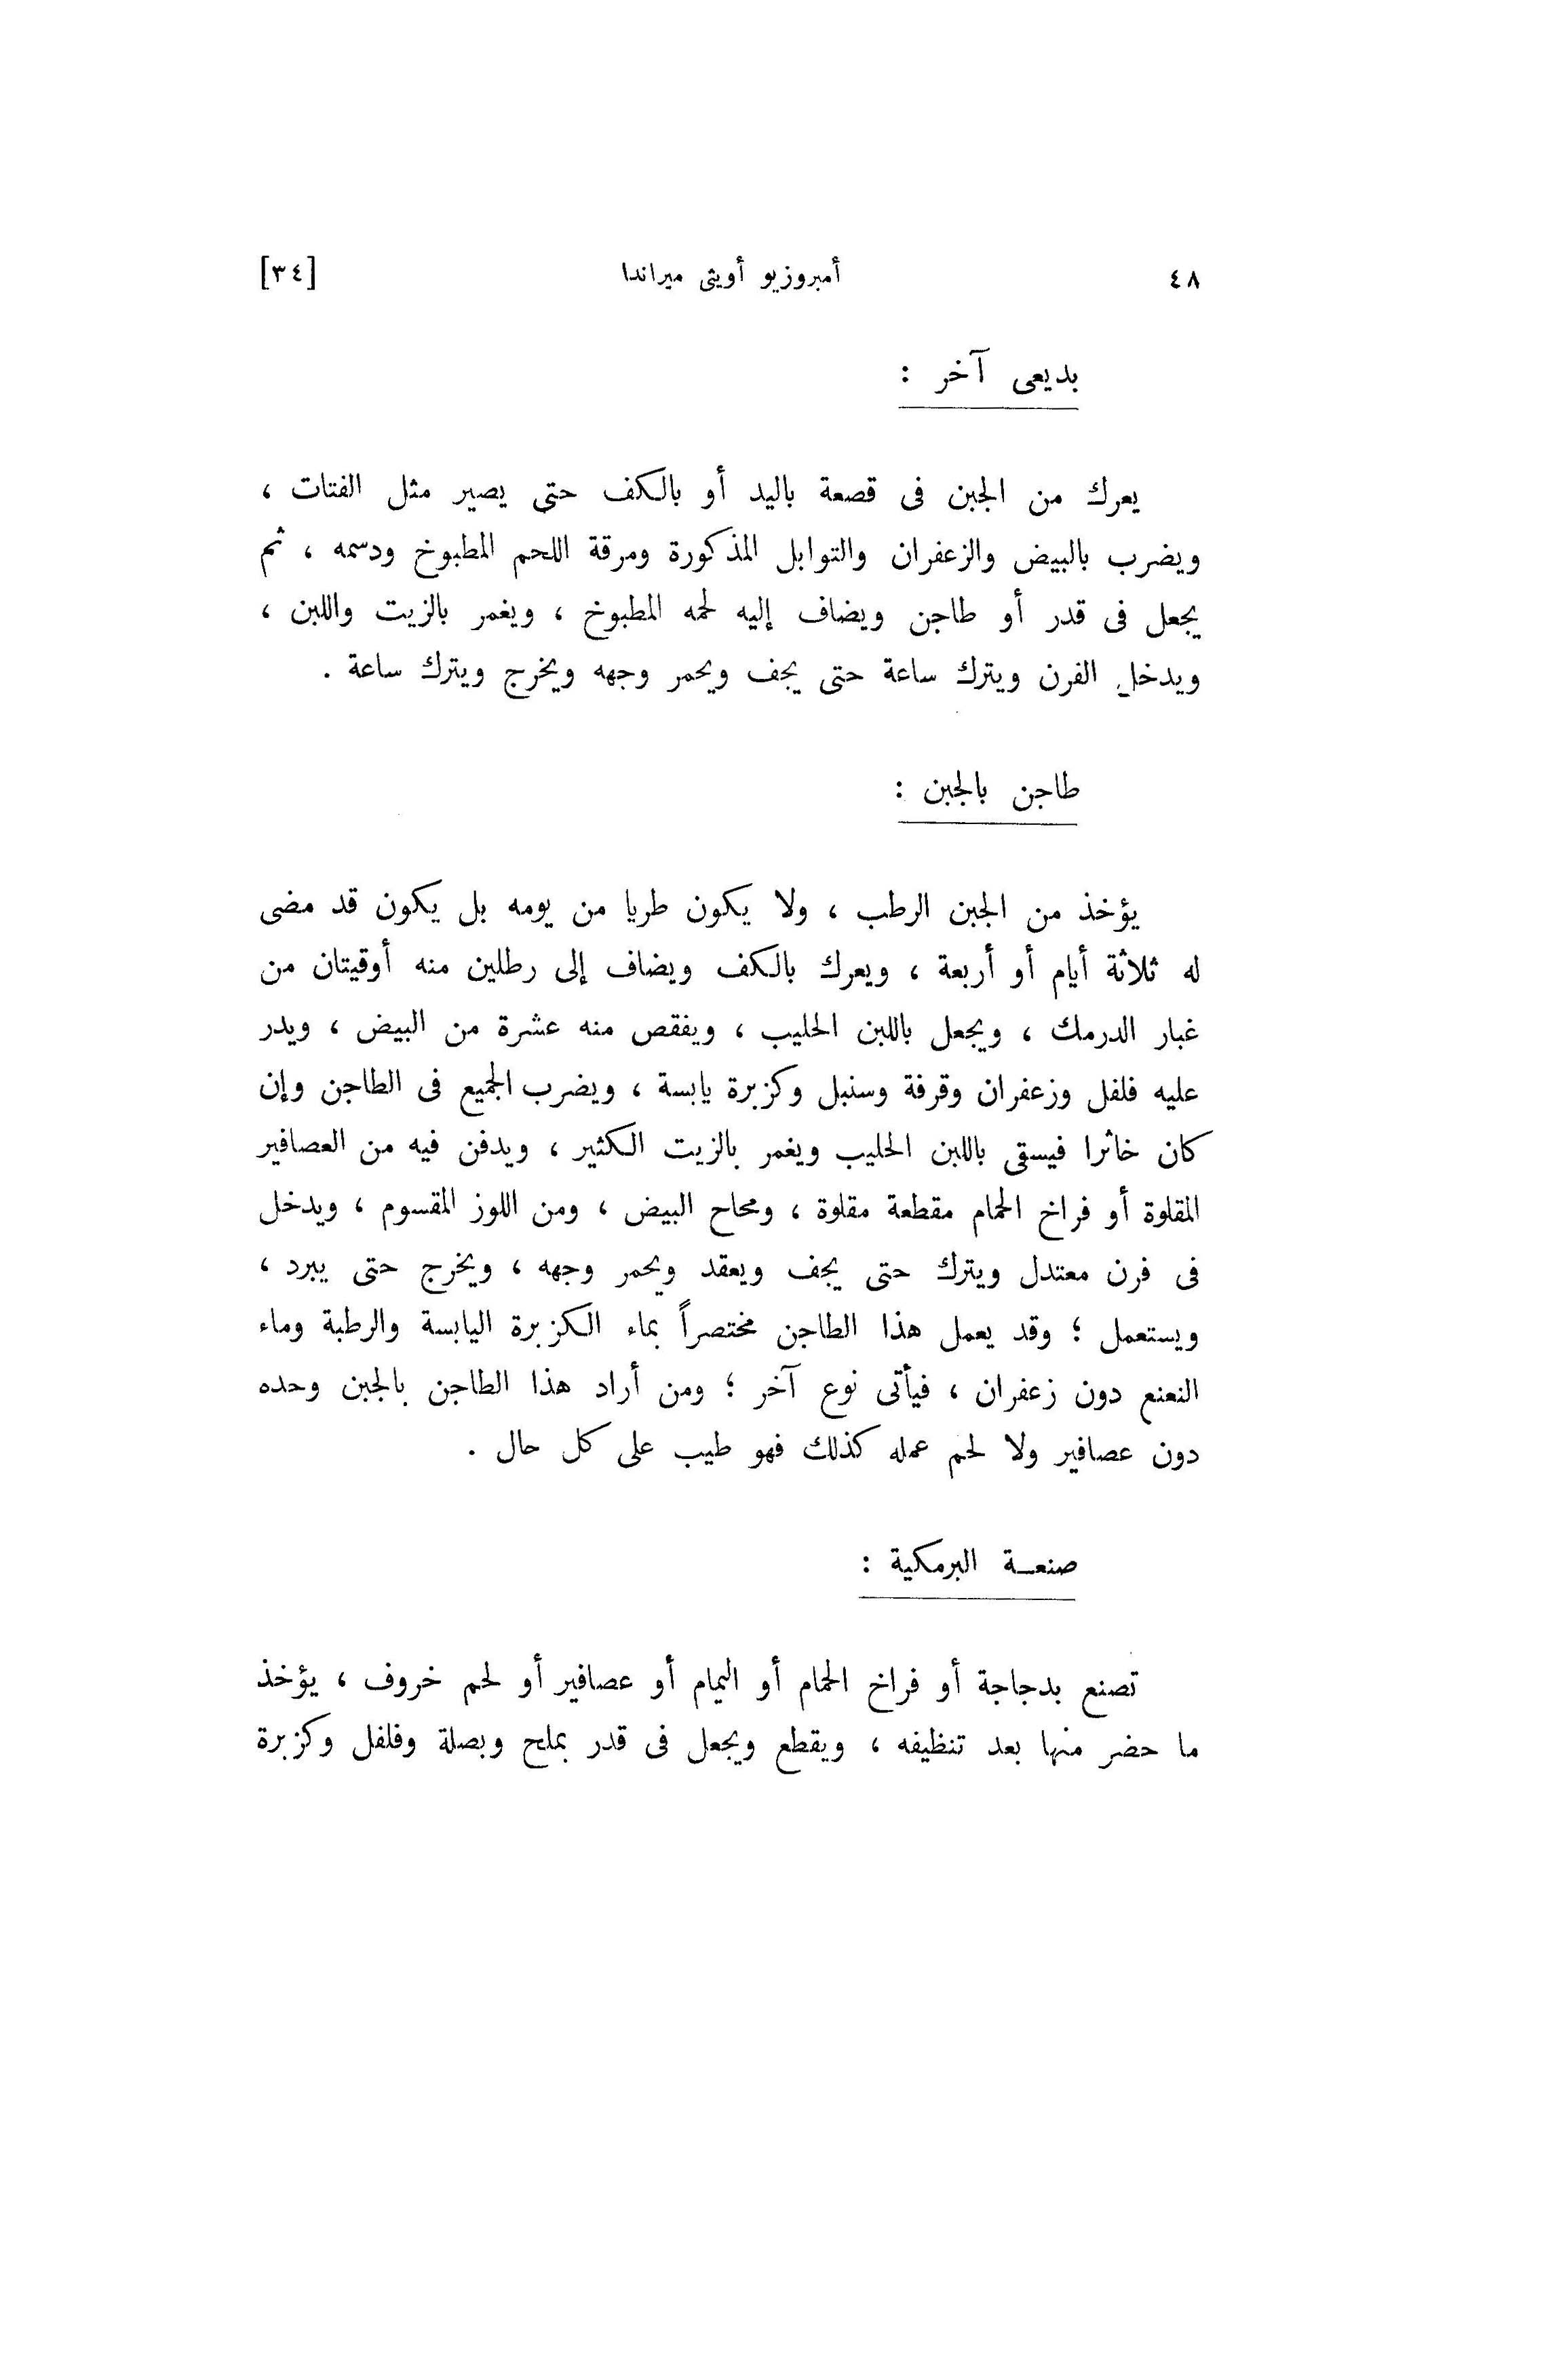 ٤٨ أمبروزيو أويثى ميراندا [٣٤]
بديعى آخر :
يعرك من الجبن فى قصعة باليد أو بالكف حتى يصير مثل الفتات ،
ويضرب بالبيض والزعفران والتوابل المذكورة ومرقة اللحم المطبوخ ودسمه ، ثم
يجعل فى قدر أو طاجن ويضاف إليه لحمه المطبوخ ، ويغمر بالزيت واللبن ،
ويدخل الفرن ويترك ساعة حتى يجف ويحمر وجهه ويخرج ويترك ساعة .
طاجن بالجبن :
يؤخذ من الجبن الرطب ، ولا يكون طريا من يومه بل يكون قد مضى
له ثلاثة أيام أو أربعة ، ويعرك بالكف ويضاف إلى رطلين منه أوقيتان من
غبار الدرمك ، ويجعل باللبن الحليب ، ويفقص منه عشرة من البيض ، ويدر
عليه فلفل وزعفران وقرفة وسنبل وكزبرة يابسة ، ويضرب الجميع فى الطاجن وإن
كان خاثرا فيسقى باللبن الحليب ويغمر بالزيت الكثير ، ويدفن فيه من العصافير
المقلوة أو فراخ الحمام مقطعة مقلوة ، ومحاح البيض ، ومن اللوز المقسوم ، ويدخل
فى فرن معتدل ويترك حتى يجف ويعقد ويحمر وجهه ، ويخرج حتى يبرد ،
ويستعمل ؛ وقد يعمل هذا الطاجن مختصراً بماء الكزبرة اليابسة والرطبة وماء
النعنع دون زعفران ، فيأتى نوع آخر ؛ ومن أراد هذا الطاجن بالجبن وحده
دون عصافير ولا لحم عمله كذلك فهو طيب على كل حال .
صنعة البرمكية :
تصنع بدجاجة أو فراخ الحمام أو اليمام أو عصافير أو لحم خروف ، يؤخذ
ما حضر منها بعد تنظيفه ، ويقطع ويجعل فى قدر بملح وبصلة وفلفل وكزبرة